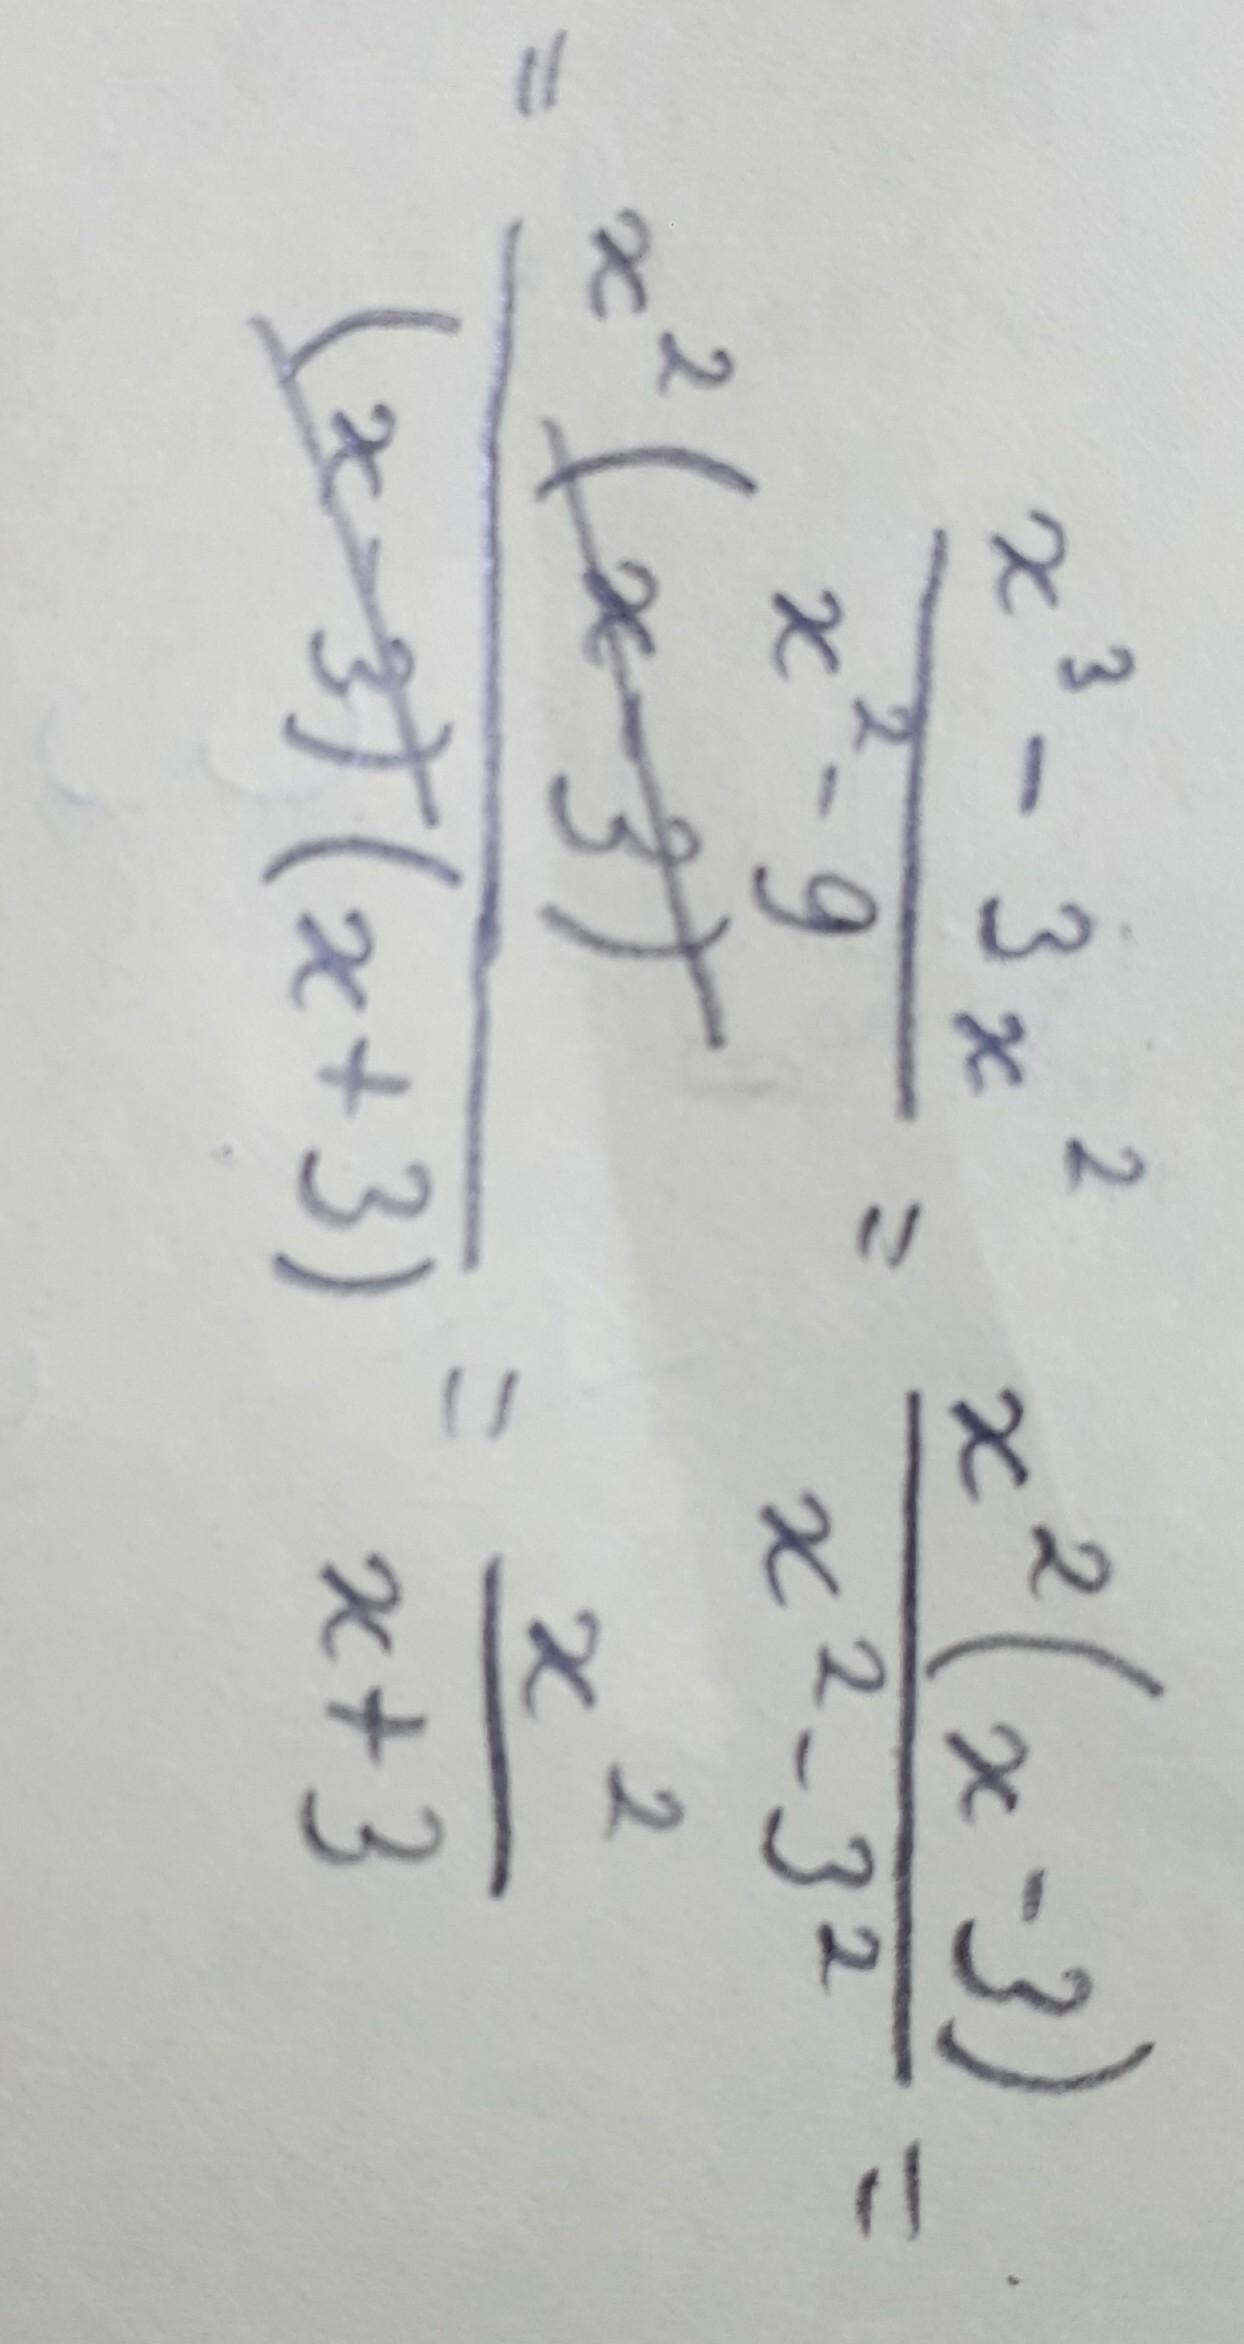 x³ - 3x² / x² - 9 = x²(x - 3) / x² - 3² =
= x²(x - 3) / (x - 3)(x + 3) = x² / x + 3